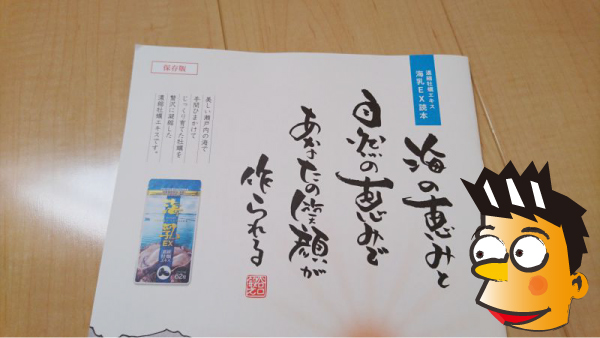 濃縮牡蠣エキス
海乳EX読本
海の恵みと
自然の恵みで
あなたの笑顔が
作られる
保存版
美しい瀬戸内の海で
手間ひまかけて
じっくり育てた牡蠣を
贅沢に凝縮した
濃縮牡蠣エキスです。
海乳EX